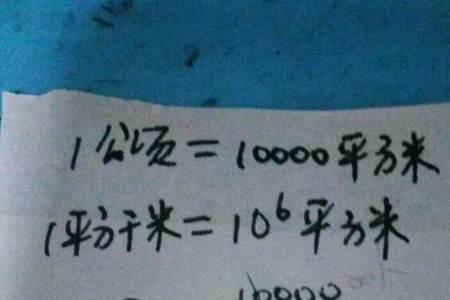 1公顷=10000平方米
1平方千米=10⁶平方米
10000